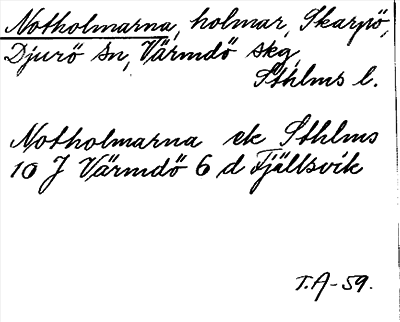 Notholmarna, holmar, Skarpö,
Djurö sn, Värmdö skg,
Sthlms l.
Notholmarna ek Sthlms
10 J Värmdö 6 d Fjällsvik
T.A-59.